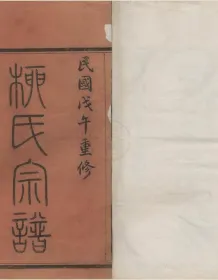 民國戊午重修
柳氏宗譜